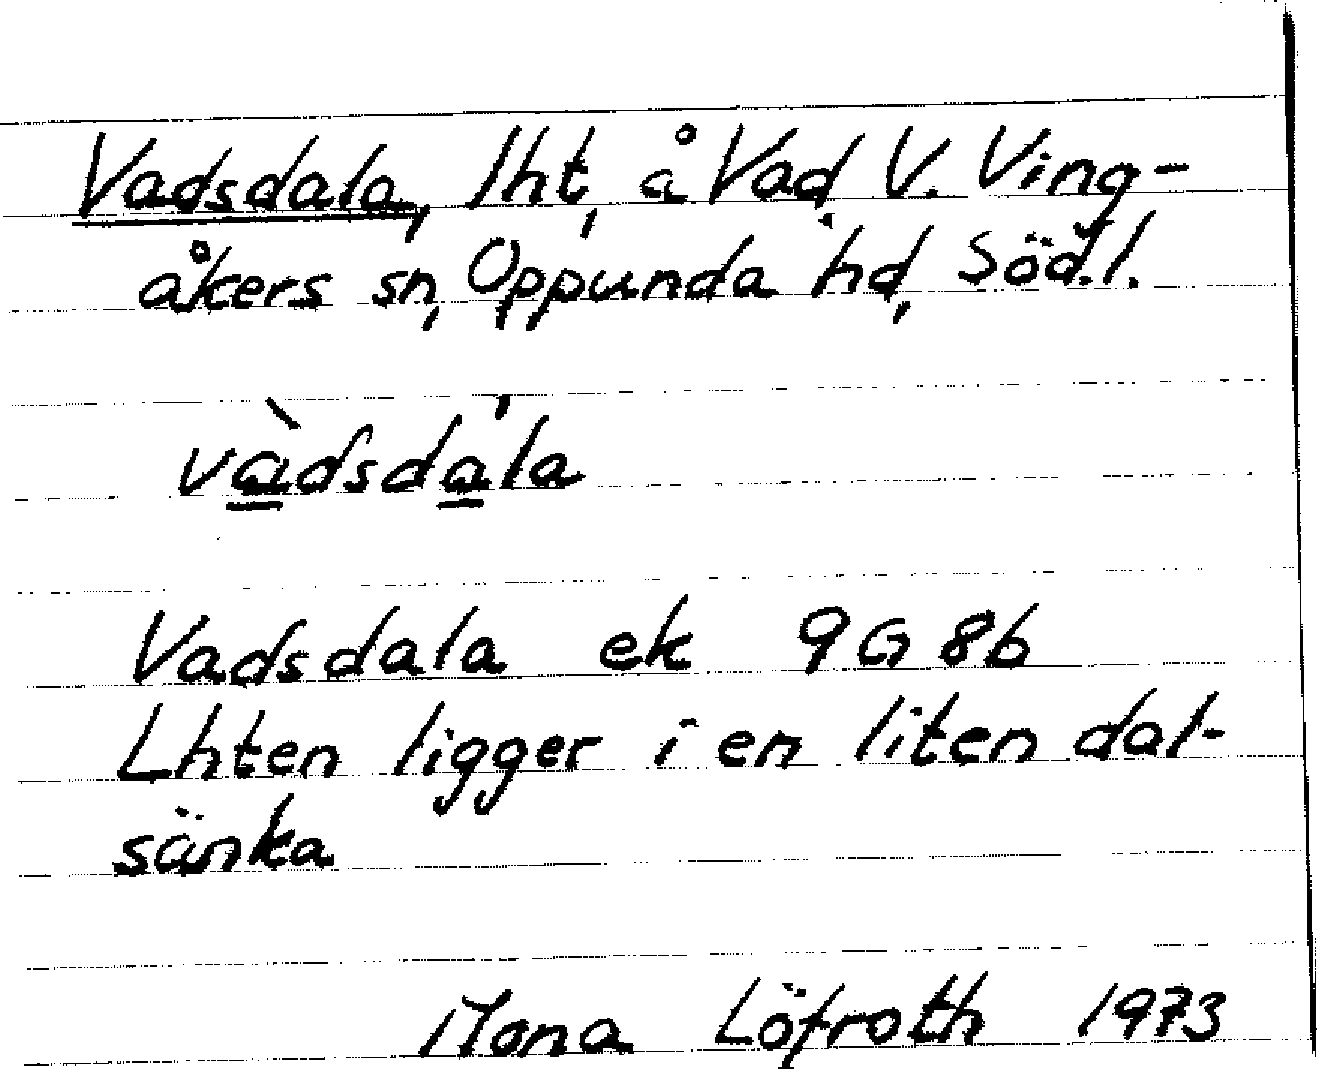 Vadsdala, lht, å Vad V. Ving-
åkers sn, Oppunda hd, Söd.l.
vàdsdála
Vadsdala ek 9G 8b
Lhten ligger i en liten dal-
sänka
Mona Löfroth 1973